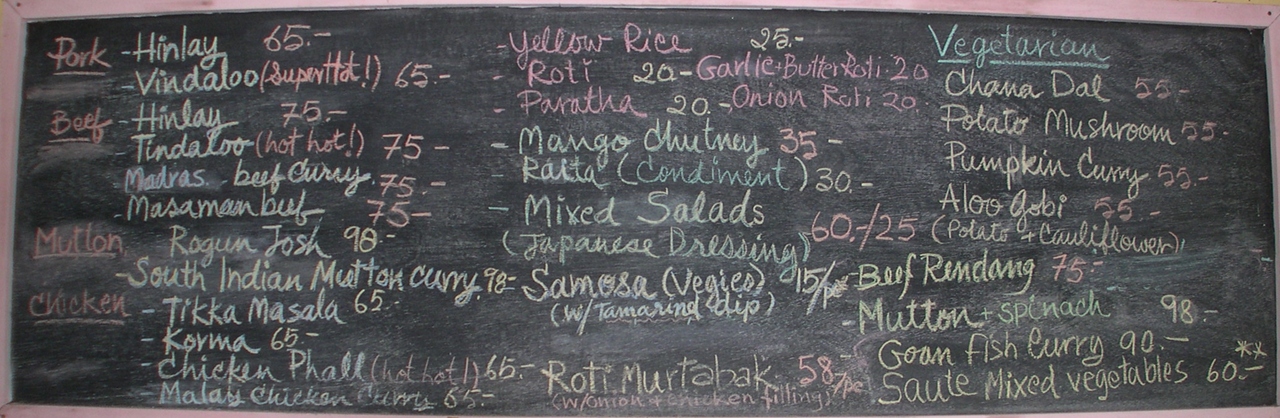 Pork - Hinlay 65.-
- Vindaloo (Super Hot!) 65.-
Beef - Hinlay 75.-
- Tindaloo (hot hot!) 75-
Madras beef Curry 75.-
- Masaman beef 75-
Mutton Rogun Josh 98.-
- South Indian Mutton curry 98-
Chicken - Tikka Masala 65.-
- Korma 65.-
- Chicken Phall (hot hot!) 65.-
- Malay Chicken Curry 65.-
- Yellow Rice 25.-
- Roti 20- Garlic+Butter Roti. 20
- Paratha 20.- Onion Roti 20.
- Mango Chutney 35-
- Raita (Condiment) 30.-
- Mixed Salads
(Japanese Dressing) 60./25
- Samosa (Vegies) 15/pc
(w/ Tamarind dip)
Roti Murtabak 58/pc
(w/onion + chicken filling)
Vegetarian
Chana Dal 55-
Potato Mushroom 55-
Pumpkin Curry 55.-
Aloo Gobi 55.-
(Potato + Cauliflower)
- Beef Rendang 75-
- Mutton + spinach 98.-
Goan Fish Curry 90.-
Saute Mixed vegetables 60.- **